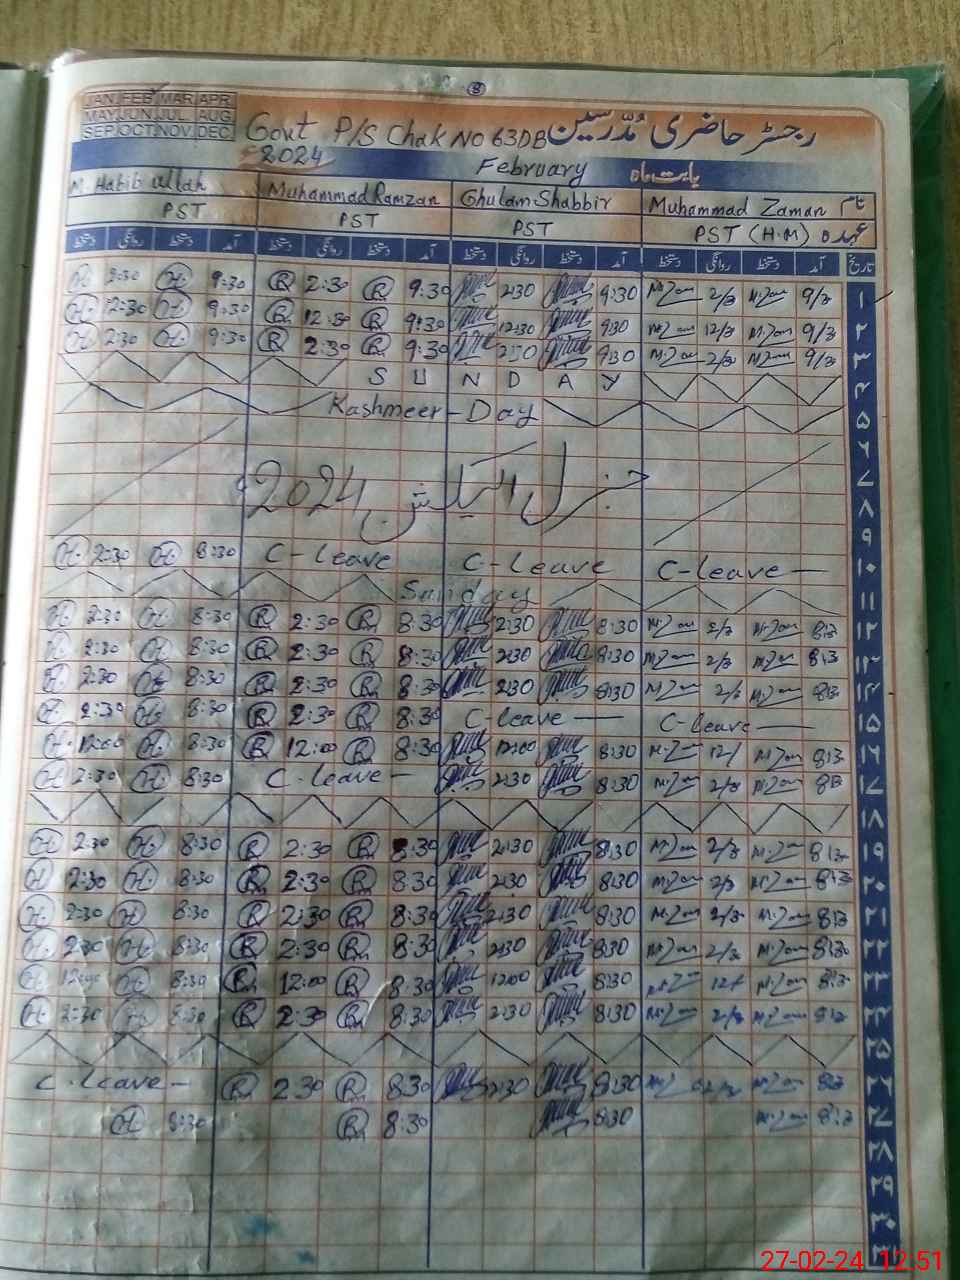 8
JAN FEB MAR APR
MAY JUN JUL AUG
SEP OCT NOV DEC
رجسٹر حاضری مُدّرسین
Govt P/S Chak No 63DB
2024
February بابت ماہ
M. Habib ullah Muhammad Ramzan Ghulam Shabbir Muhammad Zaman نام
PST PST PST PST (H.M) عہدہ
دستخط روانگی دستخط آمد دستخط روانگی دستخط آمد دستخط روانگی دستخط آمد دستخط روانگی دستخط آمد تاریخ
H 2:30 H 9:30 R 2:30 R 9:30 2:30 9:30 M.Zan 2/3 M.Zan 9/3 ۱
H 12:30 H 9:30 R 12:30 R 9:30 12:30 9:30 M.Zan 12/3 M.Zan 9/3 ۲
H 2:30 H 9:30 R 2:30 R 9:30 2:30 9:30 M.Zan 2/3 M.Zan 9/3 ۳
S U N D A Y ۴
Kashmeer - Day ۵
۶
جنرل الیکشن 2024 ۷
۸
۹
H. 2:30 H. 8:30 C-Leave C-Leave C-Leave — ۱۰
Sunday ۱۱
H 2:30 H 8:30 R 2:30 R 8:30 2:30 8:30 M.Zan 2/3 M.Zan 8:3 ۱۲
H 2:30 H 8:30 R 2:30 R 8:30 2:30 8:30 M.Zan 2/3 M.Zan 8:3 ۱۳
H 2:30 H 8:30 R 2:30 R 8:30 2:30 8:30 M.Zan M.Zan 8:3 ۱۴
H 2:30 H. 8:30 R 2:30 R 8:30 C-leave — C-leave — ۱۵
H. 12:00 H. 8:30 R 12:00 R 8:30 12:00 8:30 M.Zan 12/ M.Zan 8:3 ۱۶
H 2:30 H. 8:30 C-Leave — 2:30 8:30 M.Zan 2/3 M.Zan ۱۷
۱۸
H 2:30 H. 8:30 R 2:30 R 8:30 2:30 8:30 M.Zan 2/3 M.Zan 8:3 ۱۹
H 2:30 H. 8:30 R 2:30 R 8:30 2:30 8:30 M.Zan 2/3 M.Zan 8:3 ۲۰
H. 2:30 H 8:30 R 2:30 R 8:30 2:30 8:30 M.Zan 2/3 M.Zan 8:3 ۲۱
H. 2:30 H 8:30 R 2:30 R 8:30 2:30 8:30 M.Zan 2/3 M.Zan 8:30 ۲۲
H 12:00 H 8:30 R 12:00 R 8:30 12:00 8:30 M.Zan M.Zan 8:3 ۲۳
H. 2:30 H 8:30 R 2:30 R 8:30 2:30 8:30 M.Zan 2/3 M.Zan 8:3 ۲۴
۲۵
C-leave — R 2:30 R 8:30 2:30 8:30 M.Zan 8:3 ۲۶
H 8:30 R 8:30 8:30 M.Zan 8:3 ۲۷
۲۸
۲۹
۳۰
۳۱
27-02-24 12:51